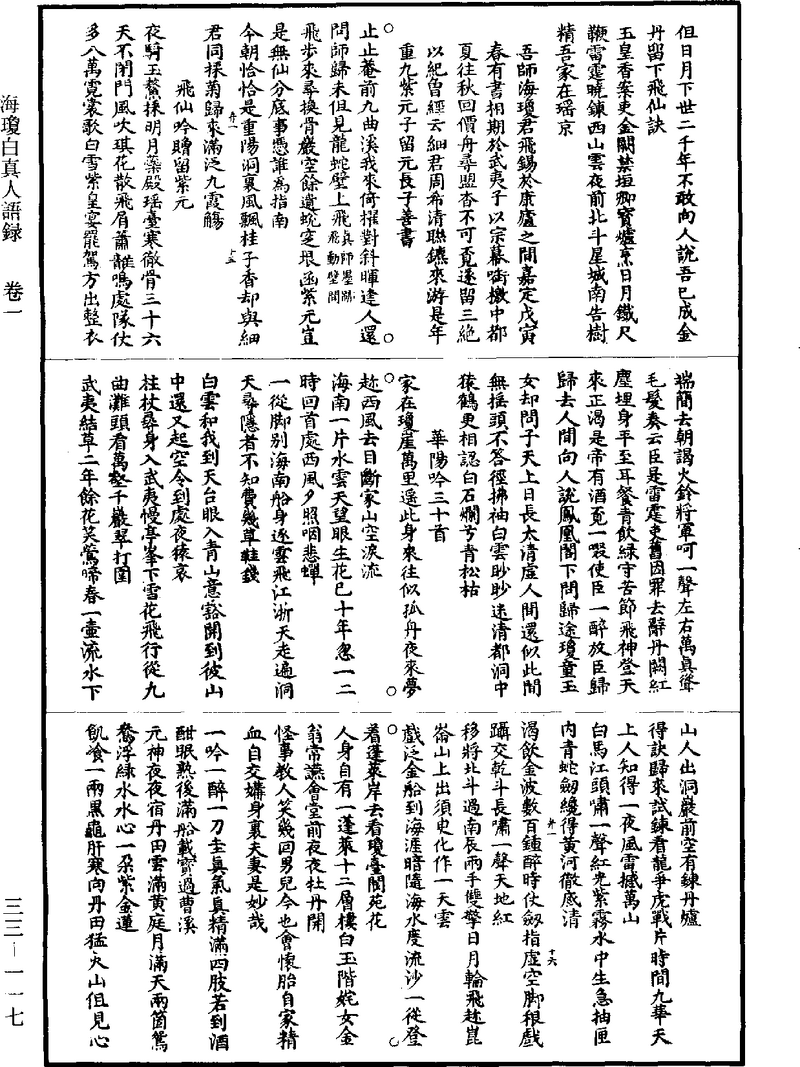 但日月下世二千年不敢向人說吾已成金
丹留下飛仙訣
玉皇香案吏金闕禁垣卿寶爐烹日月鐵尺
鞭雷霆曉鍊西山雲夜前北斗星城南告樹
精吾家在瑶京
吾師海瓊君飛錫於康廬之間嘉定戊寅
春有書相期於武夷子以宗幕喻檄中都
夏往秋回價舟尋盟杳不可覔遂留三絶
以紀曽經云細君周希清聯鑣來游是年
重九紫元子留元長子善書
止止菴前九曲溪我來倚擢對斜暉逢人還
問師歸未但見龍蛇壁上飛真師墨跡飛動壁間
飛步來尋換骨巖空餘遺蛻窆琅函紫元豈
是無仙分底事憑誰為指南
今朝恰恰是重陽洞裏風飄桂子香却與細
君同採菊歸來滿泛九霞觴
飛仙吟贈留紫元
夜騎玉鰲採明月藥殿瑶臺寒徹骨三十六
天不閉門風吹琪花散飛屑蕭韶鳴處隊仗
多八萬霓裳歌白雪紫皇宴罷駕方出整衣
卷一
十五
揣簡去朝謁火鈴將軍呵一聲左右萬真聳
毛髮奏云臣是雷霆吏舊因罪去辭丹闕紅
塵埋身平至耳餐青飲緑守苦節飛神登天
來正渴是帝有酒覔一啜使臣一醉放臣歸
歸去人間向人說鳳凰閣下問歸途瓊童玉
女却問子天上日長太清虚人間還似此間
無搖頭不答徑拂袖白雲眇眇迷清都洞中
猿鶴更相認白石爛兮青松枯
華陽吟三十首
家在瓊崖萬里遥此身來往似孤舟夜來夢
趂西風去目斷家山空淚流
海南一片水雲天望眼生花已十年忽一二
時回首處西風夕照咽悲蟬
一從脚别海南船身逐雲飛江浙天走遍洞
天尋隱者不知費幾草鞋錢
白雲和我到天台眼入青山意豁開到彼山
中還又起空令到處夜猿哀
柱杖尋身入武夷幔亭峯下雪花飛行從九
曲灘頭看萬壑千巖翠打圍
武夷結草二年餘花笑鶯啼春一壷流水下
山人出洞巖前空有鍊丹爐
得訣歸來試鍊看龍爭虎戰片時間九華天
上人知得一夜風雷撼萬山
白馬江頭嘯一聲紅光紫霧水中生急抽匣
内青蛇劒纔得黄河徹底清
渴飲金波數百鍾醉時仗劒指虚空脚根戲
躡交乾斗長嘯一聲天地紅
移將北斗過南辰兩手雙擎日月輪飛趂崑
崙山上出須臾化作一天雲
戲泛金船到海涯暗隨海水度流沙一從登
着蓬萊岸去看瓊臺閬苑花
人身自有一蓬萊十二層樓白玉階姹女金
翁常讌會堂前夜夜牡丹開
怪事教人笑幾回男兒今也會懷胎自家精
血自交媾身裏夫妻是妙哉
一吟一醉一刀圭真氣真精滿四肢若到酒
酣眠熟後滿船載寳過曹溪
元神夜夜宿丹田雲滿黄庭月滿天兩箇鴛
鴦浮緑水水心一朶紫金蓮
飢飡一兩黒龜肝寒向丹田猛火山但見心
卷一
十六
海瓊白真人語録　卷一
三三－一一七